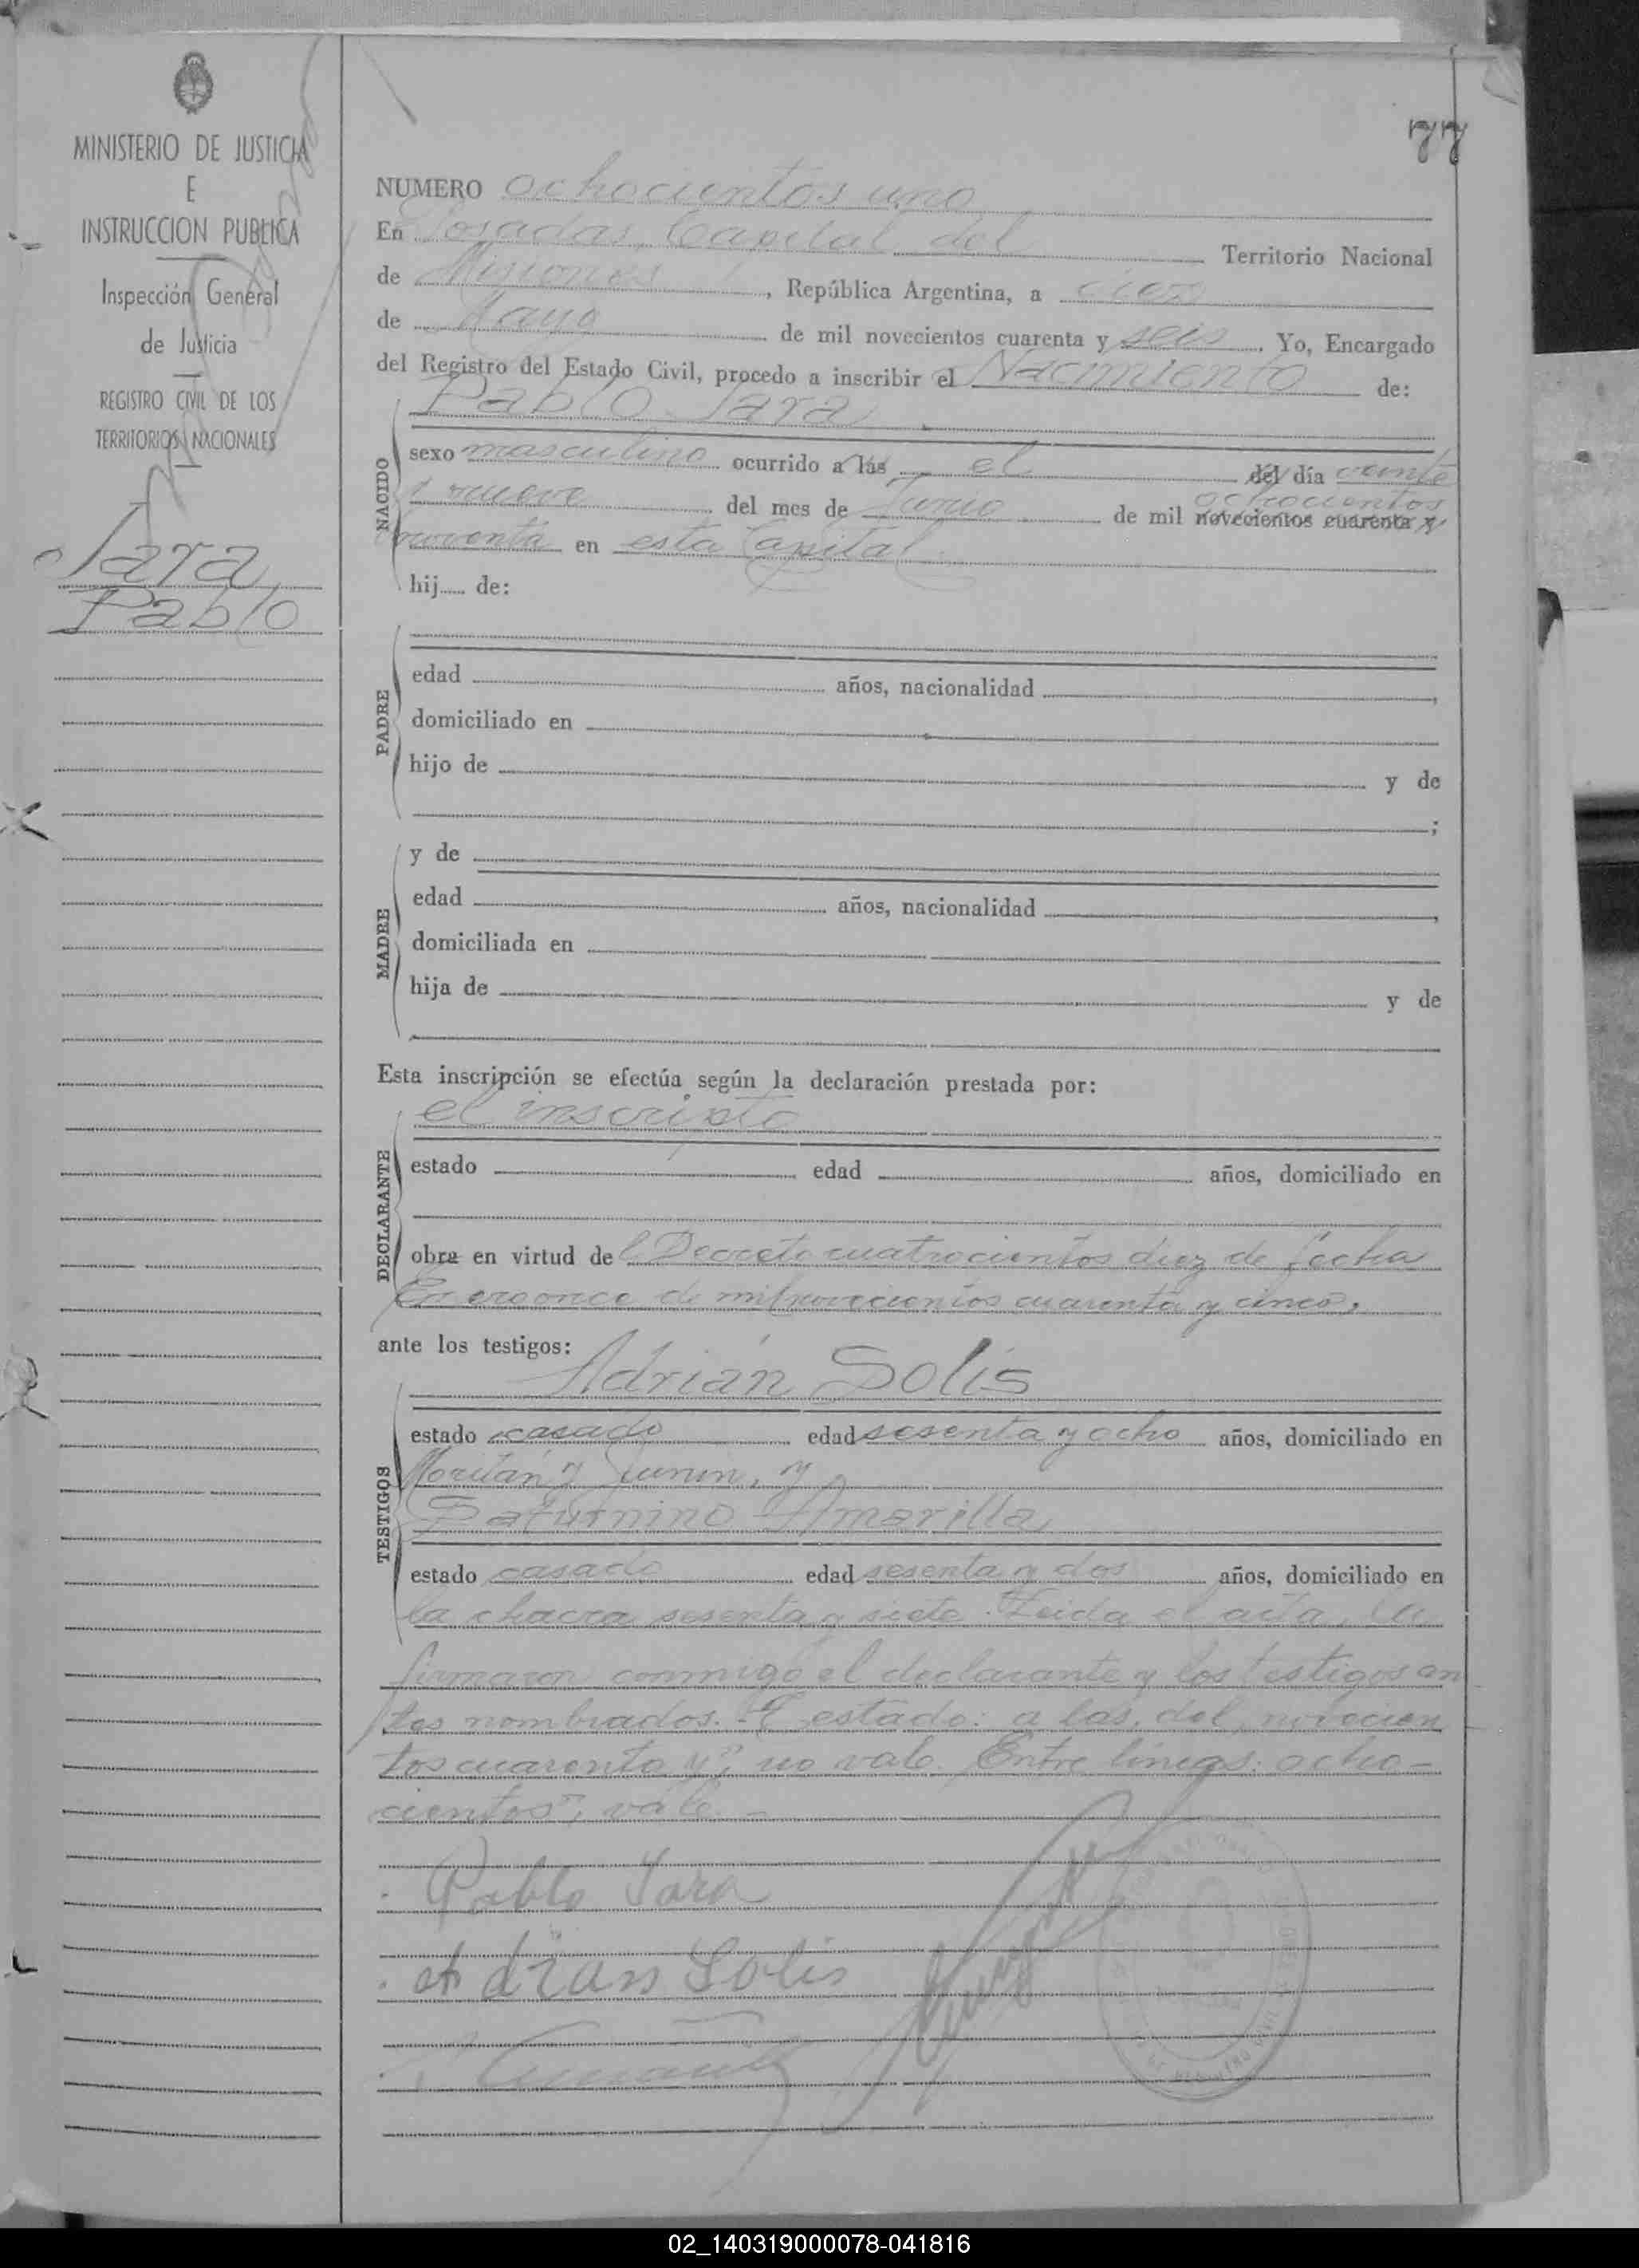 77
MINISTERIO DE JUSTICIA
E
INSTRUCCION PUBLICA
Inspección General
de Justicia
REGISTRO CIVIL DE LOS
TERRITORIOS NACIONALES
Jara
Pablo
NUMERO ochocientos uno
En Posadas, Capital del Territorio Nacional
de Misiones, República Argentina, a
de Mayo de mil novecientos cuarenta y seis. Yo, Encargado
del Registro del Estado Civil, procedo a inscribir el Nacimiento de:
Pablo Jara
NACIDO
sexo masculino ocurrido a las el del día veinte
y nueve del mes de Junio de mil novecientos cuarenta y
ochocientos
noventa en esta Capital
hij..... de:
PADRE
edad años, nacionalidad
domiciliado en
hijo de y de
;
MADRE
y de
edad años, nacionalidad
domiciliada en
hija de y de
Esta inscripción se efectúa según la declaración prestada por:
el inscripto
DECLARANTE
estado edad años, domiciliado en
obra en virtud del Decreto cuatrocientos diez de fecha
Enero once de mil novecientos cuarenta y cinco.
ante los testigos:
Adrián Solis
TESTIGOS
estado casado edad sesenta y ocho años, domiciliado en
y Junin, y
Saturnino Amarilla
estado casado edad sesenta y dos años, domiciliado en
la chacra sesenta y siete. Leida el acta, la
firmaron conmigo el declarante y los testigos an
tes nombrados. E estado: a las, del, novecien
tos cuarenta y", no vale. Entre líneas: ocho-
cientos", vale. -
Pablo Jara
Adrian Solis
02_140319000078-041816